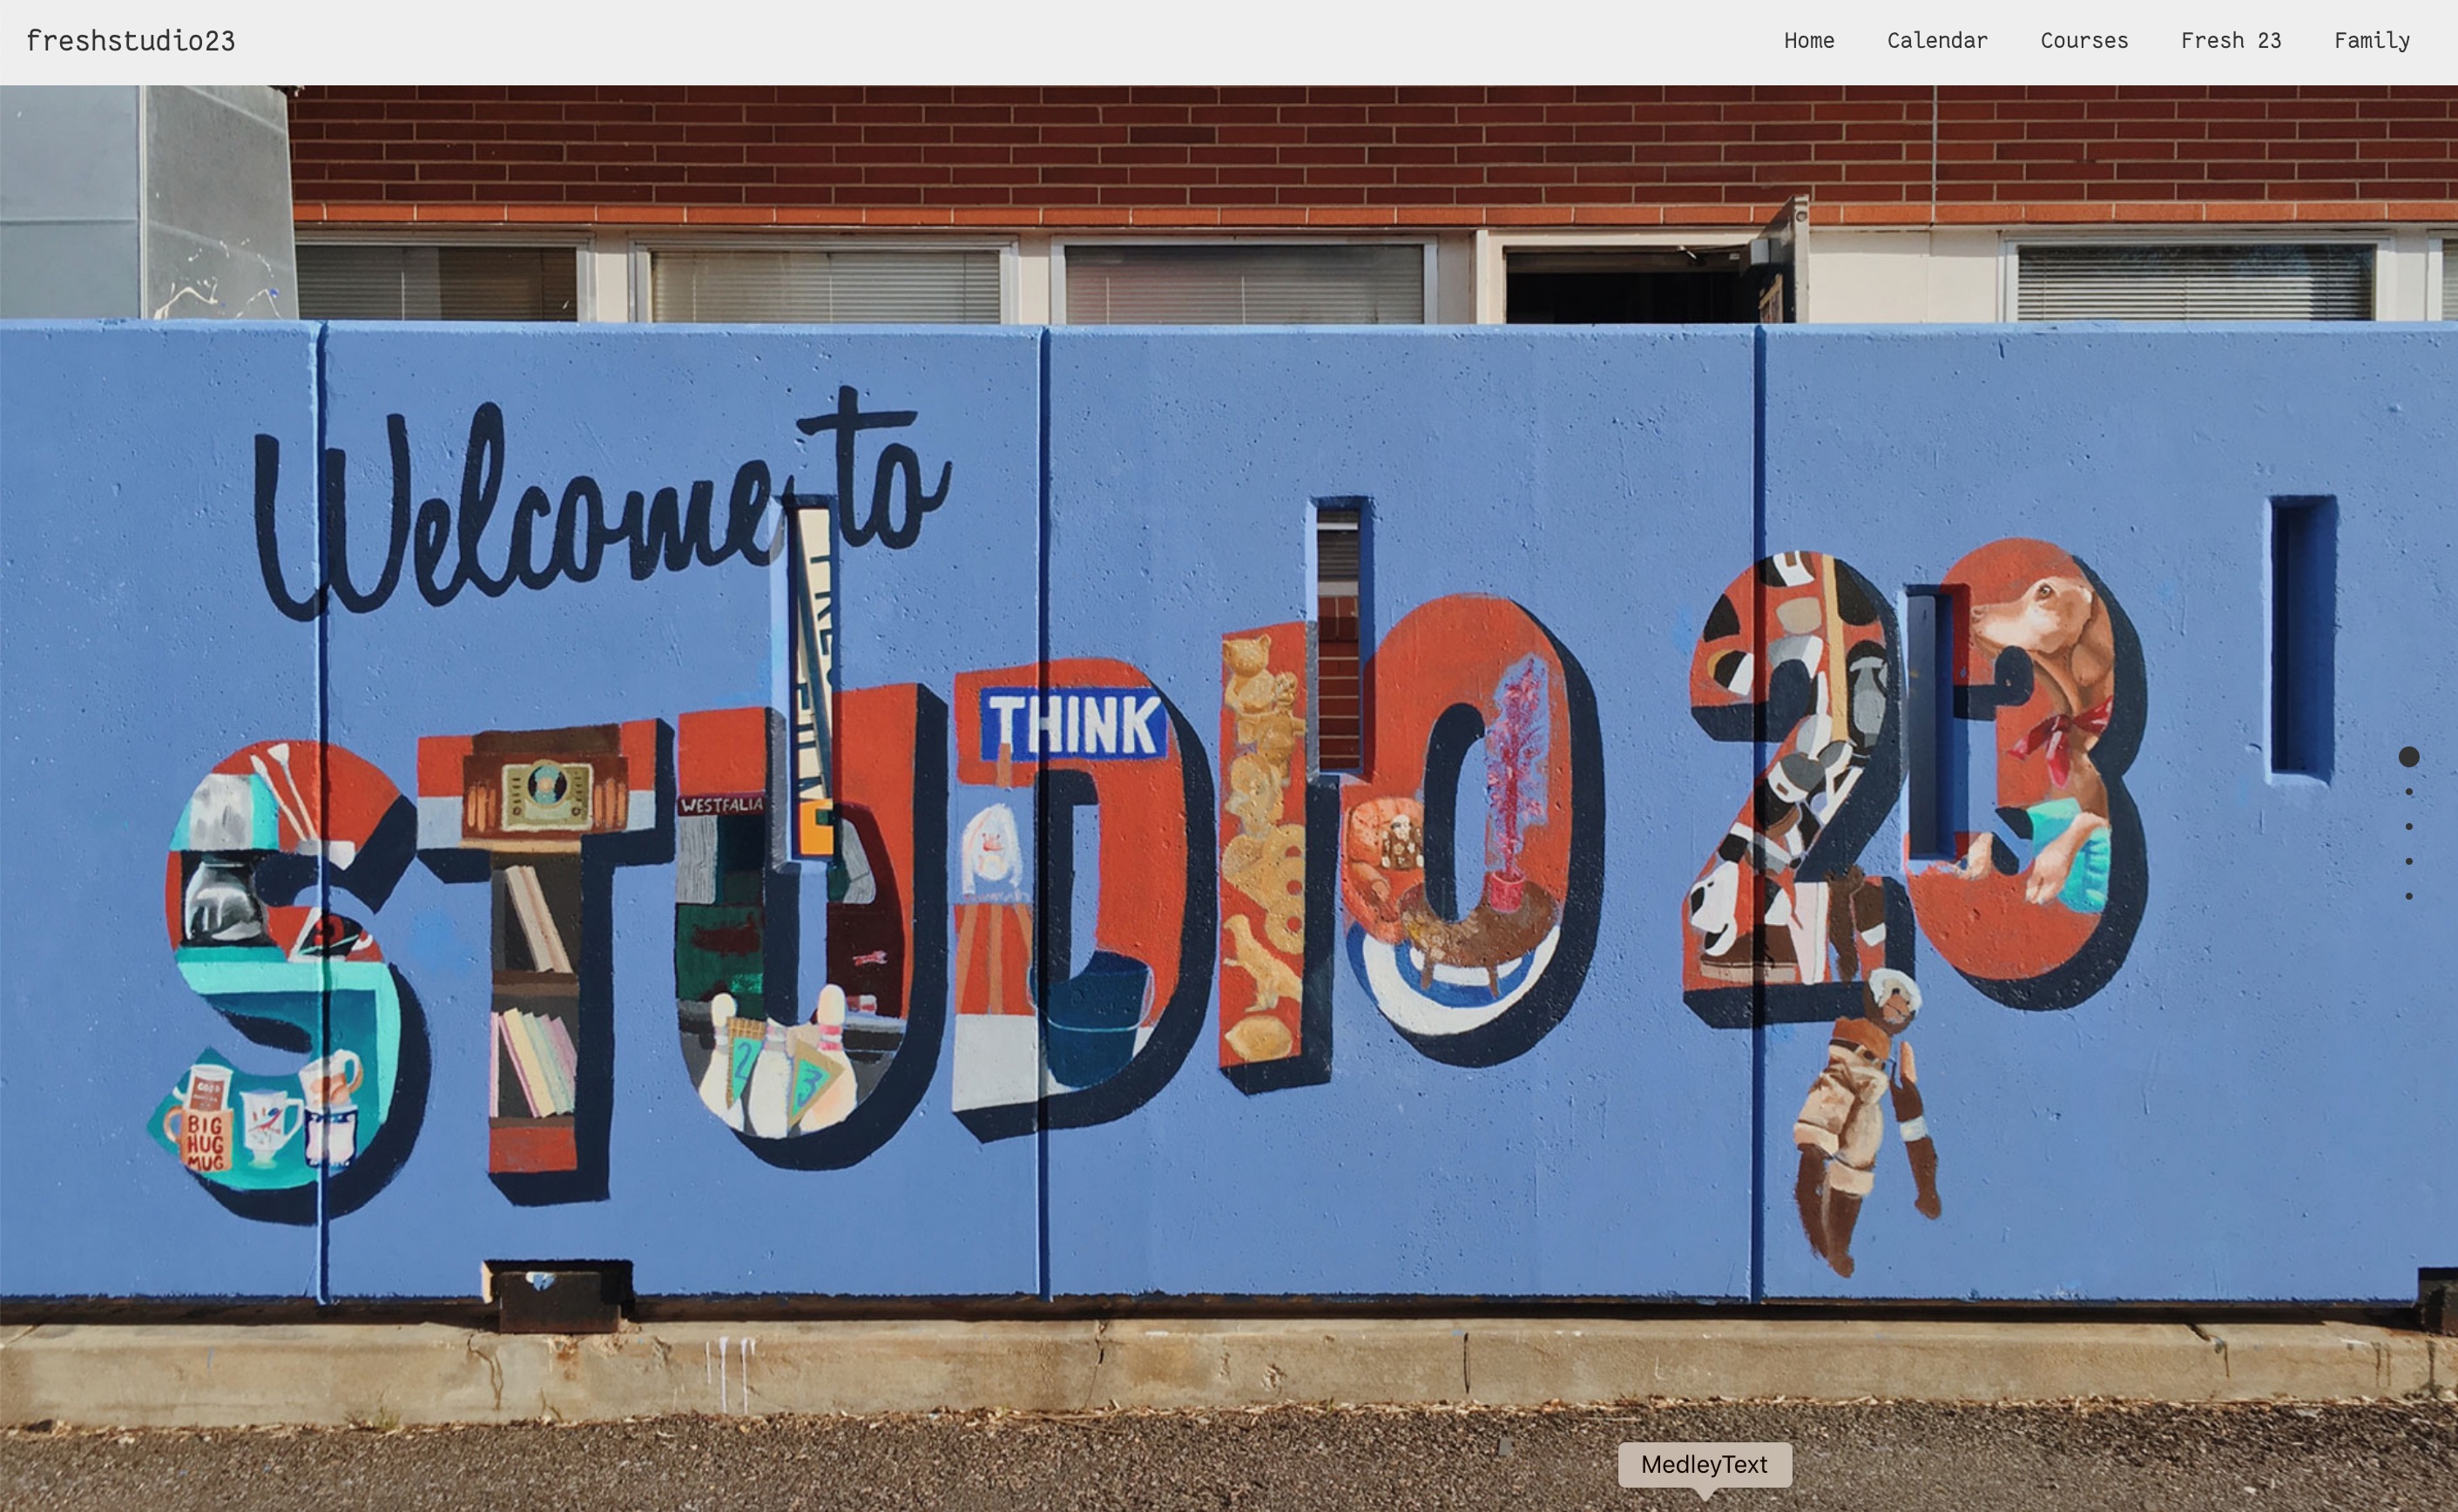 freshstudio23
Home Calendar Courses Fresh 23 Family
Welcome to
STUDIO 23
THINK
WESTFALIA
2 3
BIG
HUG
MUG
MedleyText